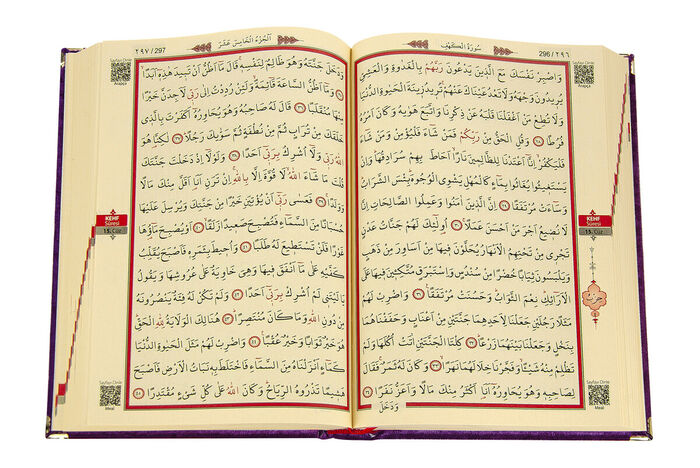 296 / ٢٩٦
سُورَةُ الْكَهْفِ
وَاصْبِرْ نَفْسَكَ مَعَ الَّذِينَ يَدْعُونَ رَبَّهُمْ بِالْغَدٰوةِ وَالْعَشِيِّ
يُرِيدُونَ وَجْهَهُ وَلَا تَعْدُ عَيْنَاكَ عَنْهُمْ تُرِيدُ زِينَةَ الْحَيٰوةِ الدُّنْيَا
وَلَا تُطِعْ مَنْ اَغْفَلْنَا قَلْبَهُ عَنْ ذِكْرِنَا وَاتَّبَعَ هَوٰيهُ وَكَانَ اَمْرُهُ
فُرُطًا ﴿٢٨﴾ وَقُلِ الْحَقُّ مِنْ رَبِّكُمْ فَمَنْ شَاءَ فَلْيُؤْمِنْ وَمَنْ شَاءَ
فَلْيَكْفُرْ اِنَّا اَعْتَدْنَا لِلظَّالِمِينَ نَارًا اَحَاطَ بِهِمْ سُرَادِقُهَا وَاِنْ
يَسْتَغِيثُوا يُغَاثُوا بِمَاءٍ كَالْمُهْلِ يَشْوِي الْوُجُوهَ بِئْسَ الشَّرَابُ
وَسَاءَتْ مُرْتَفَقًا ﴿٢٩﴾ اِنَّ الَّذِينَ اٰمَنُوا وَعَمِلُوا الصَّالِحَاتِ اِنَّا
لَا نُضِيعُ اَجْرَ مَنْ اَحْسَنَ عَمَلًا ﴿٣٠﴾ اُولٰئِكَ لَهُمْ جَنَّاتُ عَدْنٍ
تَجْرِي مِنْ تَحْتِهِمُ الْاَنْهَارُ يُحَلَّوْنَ فِيهَا مِنْ اَسَاوِرَ مِنْ ذَهَبٍ
وَيَلْبَسُونَ ثِيَابًا خُضْرًا مِنْ سُنْدُسٍ وَاِسْتَبْرَقٍ مُتَّكِئِينَ فِيهَا عَلَى
الْاَرَائِكِ نِعْمَ الثَّوَابُ وَحَسُنَتْ مُرْتَفَقًا ﴿٣١﴾ وَاضْرِبْ لَهُمْ
مَثَلًا رَجُلَيْنِ جَعَلْنَا لِاَحَدِهِمَا جَنَّتَيْنِ مِنْ اَعْنَابٍ وَحَفَفْنَاهُمَا
بِنَخْلٍ وَجَعَلْنَا بَيْنَهُمَا زَرْعًا ﴿٣٢﴾ كِلْتَا الْجَنَّتَيْنِ اٰتَتْ اُكُلَهَا وَلَمْ
تَظْلِمْ مِنْهُ شَيْئًا وَفَجَّرْنَا خِلَالَهُمَا نَهَرًا ﴿٣٣﴾ وَكَانَ لَهُ ثَمَرٌ فَقَالَ
لِصَاحِبِهِ وَهُوَ يُحَاوِرُهُ اَنَا اَكْثَرُ مِنْكَ مَالًا وَاَعَزُّ نَفَرًا ﴿٣٤﴾
وَدَخَلَ
Sayfayı Dinle
Arapça
KEHF
Sûresi
15. Cüz
حزب
Sayfayı Dinle
Meal
اَلْجُزْءُ الْخَامِسَ عَشَرَ
٢٩٧ / 297
وَدَخَلَ جَنَّتَهُ وَهُوَ ظَالِمٌ لِنَفْسِهِ قَالَ مَا اَظُنُّ اَنْ تَبِيدَ هٰذِهِ اَبَدًا
﴿٣٥﴾ وَمَا اَظُنُّ السَّاعَةَ قَائِمَةً وَلَئِنْ رُدِدْتُ اِلٰى رَبِّي لَاَجِدَنَّ خَيْرًا
مِنْهَا مُنْقَلَبًا ﴿٣٦﴾ قَالَ لَهُ صَاحِبُهُ وَهُوَ يُحَاوِرُهُ اَكَفَرْتَ بِالَّذِي
خَلَقَكَ مِنْ تُرَابٍ ثُمَّ مِنْ نُطْفَةٍ ثُمَّ سَوّٰيكَ رَجُلًا ﴿٣٧﴾ لٰكِنَّا هُوَ
اللّٰهُ رَبِّي وَلَا اُشْرِكُ بِرَبِّي اَحَدًا ﴿٣٨﴾ وَلَوْلَا اِذْ دَخَلْتَ جَنَّتَكَ
قُلْتَ مَا شَاءَ اللّٰهُ لَا قُوَّةَ اِلَّا بِاللّٰهِ اِنْ تَرَنِ اَنَا اَقَلَّ مِنْكَ مَالًا
وَوَلَدًا ﴿٣٩﴾ فَعَسٰى رَبِّي اَنْ يُؤْتِيَنِ خَيْرًا مِنْ جَنَّتِكَ وَيُرْسِلَ عَلَيْهَا
حُسْبَانًا مِنَ السَّمَاءِ فَتُصْبِحَ صَعِيدًا زَلَقًا ﴿٤٠﴾ اَوْ يُصْبِحَ مَاؤُهَا
غَوْرًا فَلَنْ تَسْتَطِيعَ لَهُ طَلَبًا ﴿٤١﴾ وَاُحِيطَ بِثَمَرِهِ فَاَصْبَحَ يُقَلِّبُ
كَفَّيْهِ عَلٰى مَا اَنْفَقَ فِيهَا وَهِيَ خَاوِيَةٌ عَلٰى عُرُوشِهَا وَيَقُولُ
يَا لَيْتَنِي لَمْ اُشْرِكْ بِرَبِّي اَحَدًا ﴿٤٢﴾ وَلَمْ تَكُنْ لَهُ فِئَةٌ يَنْصُرُونَهُ
مِنْ دُونِ اللّٰهِ وَمَا كَانَ مُنْتَصِرًا ﴿٤٣﴾ هُنَالِكَ الْوَلَايَةُ لِلّٰهِ الْحَقِّ
هُوَ خَيْرٌ ثَوَابًا وَخَيْرٌ عُقْبًا ﴿٤٤﴾ وَاضْرِبْ لَهُمْ مَثَلَ الْحَيٰوةِ الدُّنْيَا
كَمَاءٍ اَنْزَلْنَاهُ مِنَ السَّمَاءِ فَاخْتَلَطَ بِهِ نَبَاتُ الْاَرْضِ فَاَصْبَحَ
هَشِيمًا تَذْرُوهُ الرِّيَاحُ وَكَانَ اللّٰهُ عَلٰى كُلِّ شَيْءٍ مُقْتَدِرًا ﴿٤٥﴾
Sayfayı Dinle
Arapça
KEHF
Sûresi
15. Cüz
Sayfayı Dinle
Meal